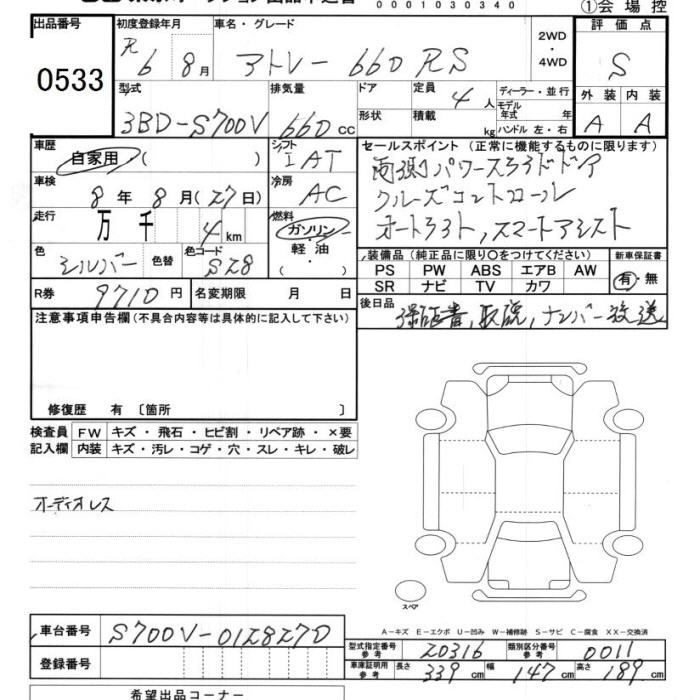 0001030340
①会場控
出品番号 初度登録年月 車名・グレード 評価点
0533 R6 8月 アトレー 660 RS 2WD・4WD S
型式 排気量 ドア 定員 4人 ディーラー・並行 外装 内装
3BD-S700V 660cc 形状 積載 kg モデル年式 年 ハンドル 左・右 A A
車歴 自家用・( ) シフト IAT セールスポイント(正常に機能するものに限ります)
両側パワースライドドア
車検 8年8月(27日) 冷房 AC クルーズコントロール
走行 万千 4km 燃料 ガソリン・軽・油 オートライト,スマートアシスト
色 シルバー 色替 色コード S28 装備品(純正品に限り○をつけてください) 新車保証書
PS PW ABS エアB AW 有・無
SR ナビ TV カワ
R券 9710円 名変期限 月 日 後日品 保証書,取説,ナンバー放送
注意事項申告欄(不具合内容等は具体的に記入して下さい)
修復歴 有〔箇所 〕
検査員 FW キズ・飛石・ヒビ割・リペア跡・×要
記入欄 内装 キズ・汚レ・コゲ・穴・スレ・キレ・破レ
オーディオレス
スペア
A−キズ E−エクボ U−凹み W−補修跡 S−サビ C−腐食 XX−交換済
車台番号 S700V-0128270 型式指定番号 参考 20316 類別区分番号 参考 0011
登録番号 車庫証明用 参考 長さ 339cm 幅 147cm 高さ 189cm
希望出品コーナー